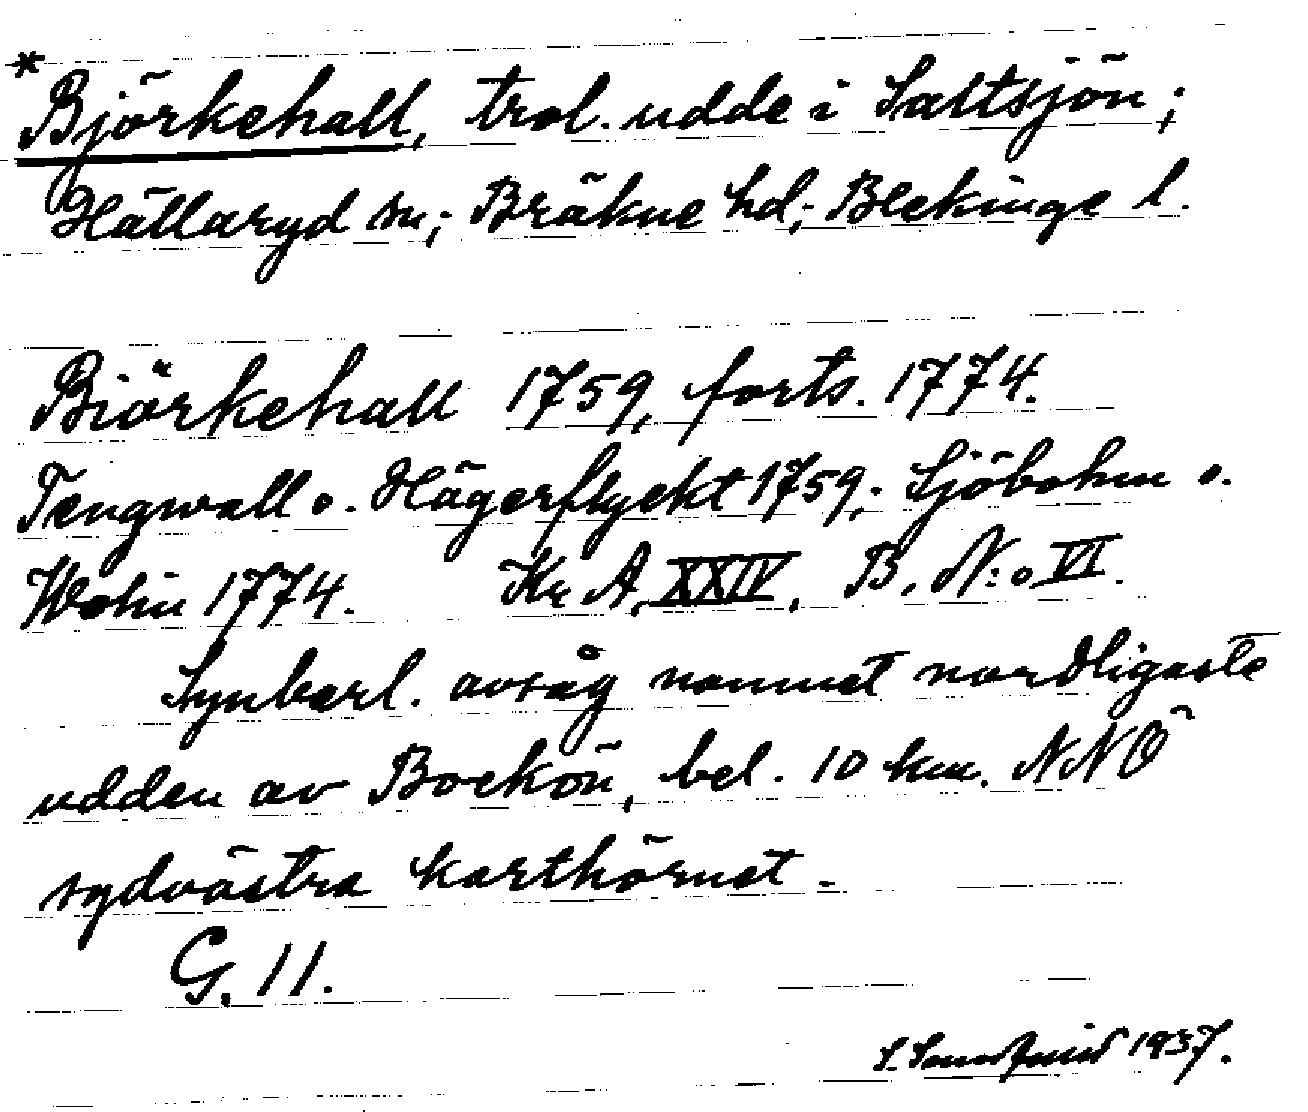 * Björkehall, trol. udde i Saltsjön;
Hällaryd sn; Bräkne hd; Blekinge l.
Biörkehall 1759, forts. 1774.
Tengwall o. Hägerflyckt 1759; Sjöbohm o.
Wohn 1774. Kr. A. XXIV, B. N:o VI.
Synbarl. avsåg namnet nordligaste
udden av Boekön, bel. 10 km. NNÖ
sydvästra karthörnet.
G. 11.
1937.